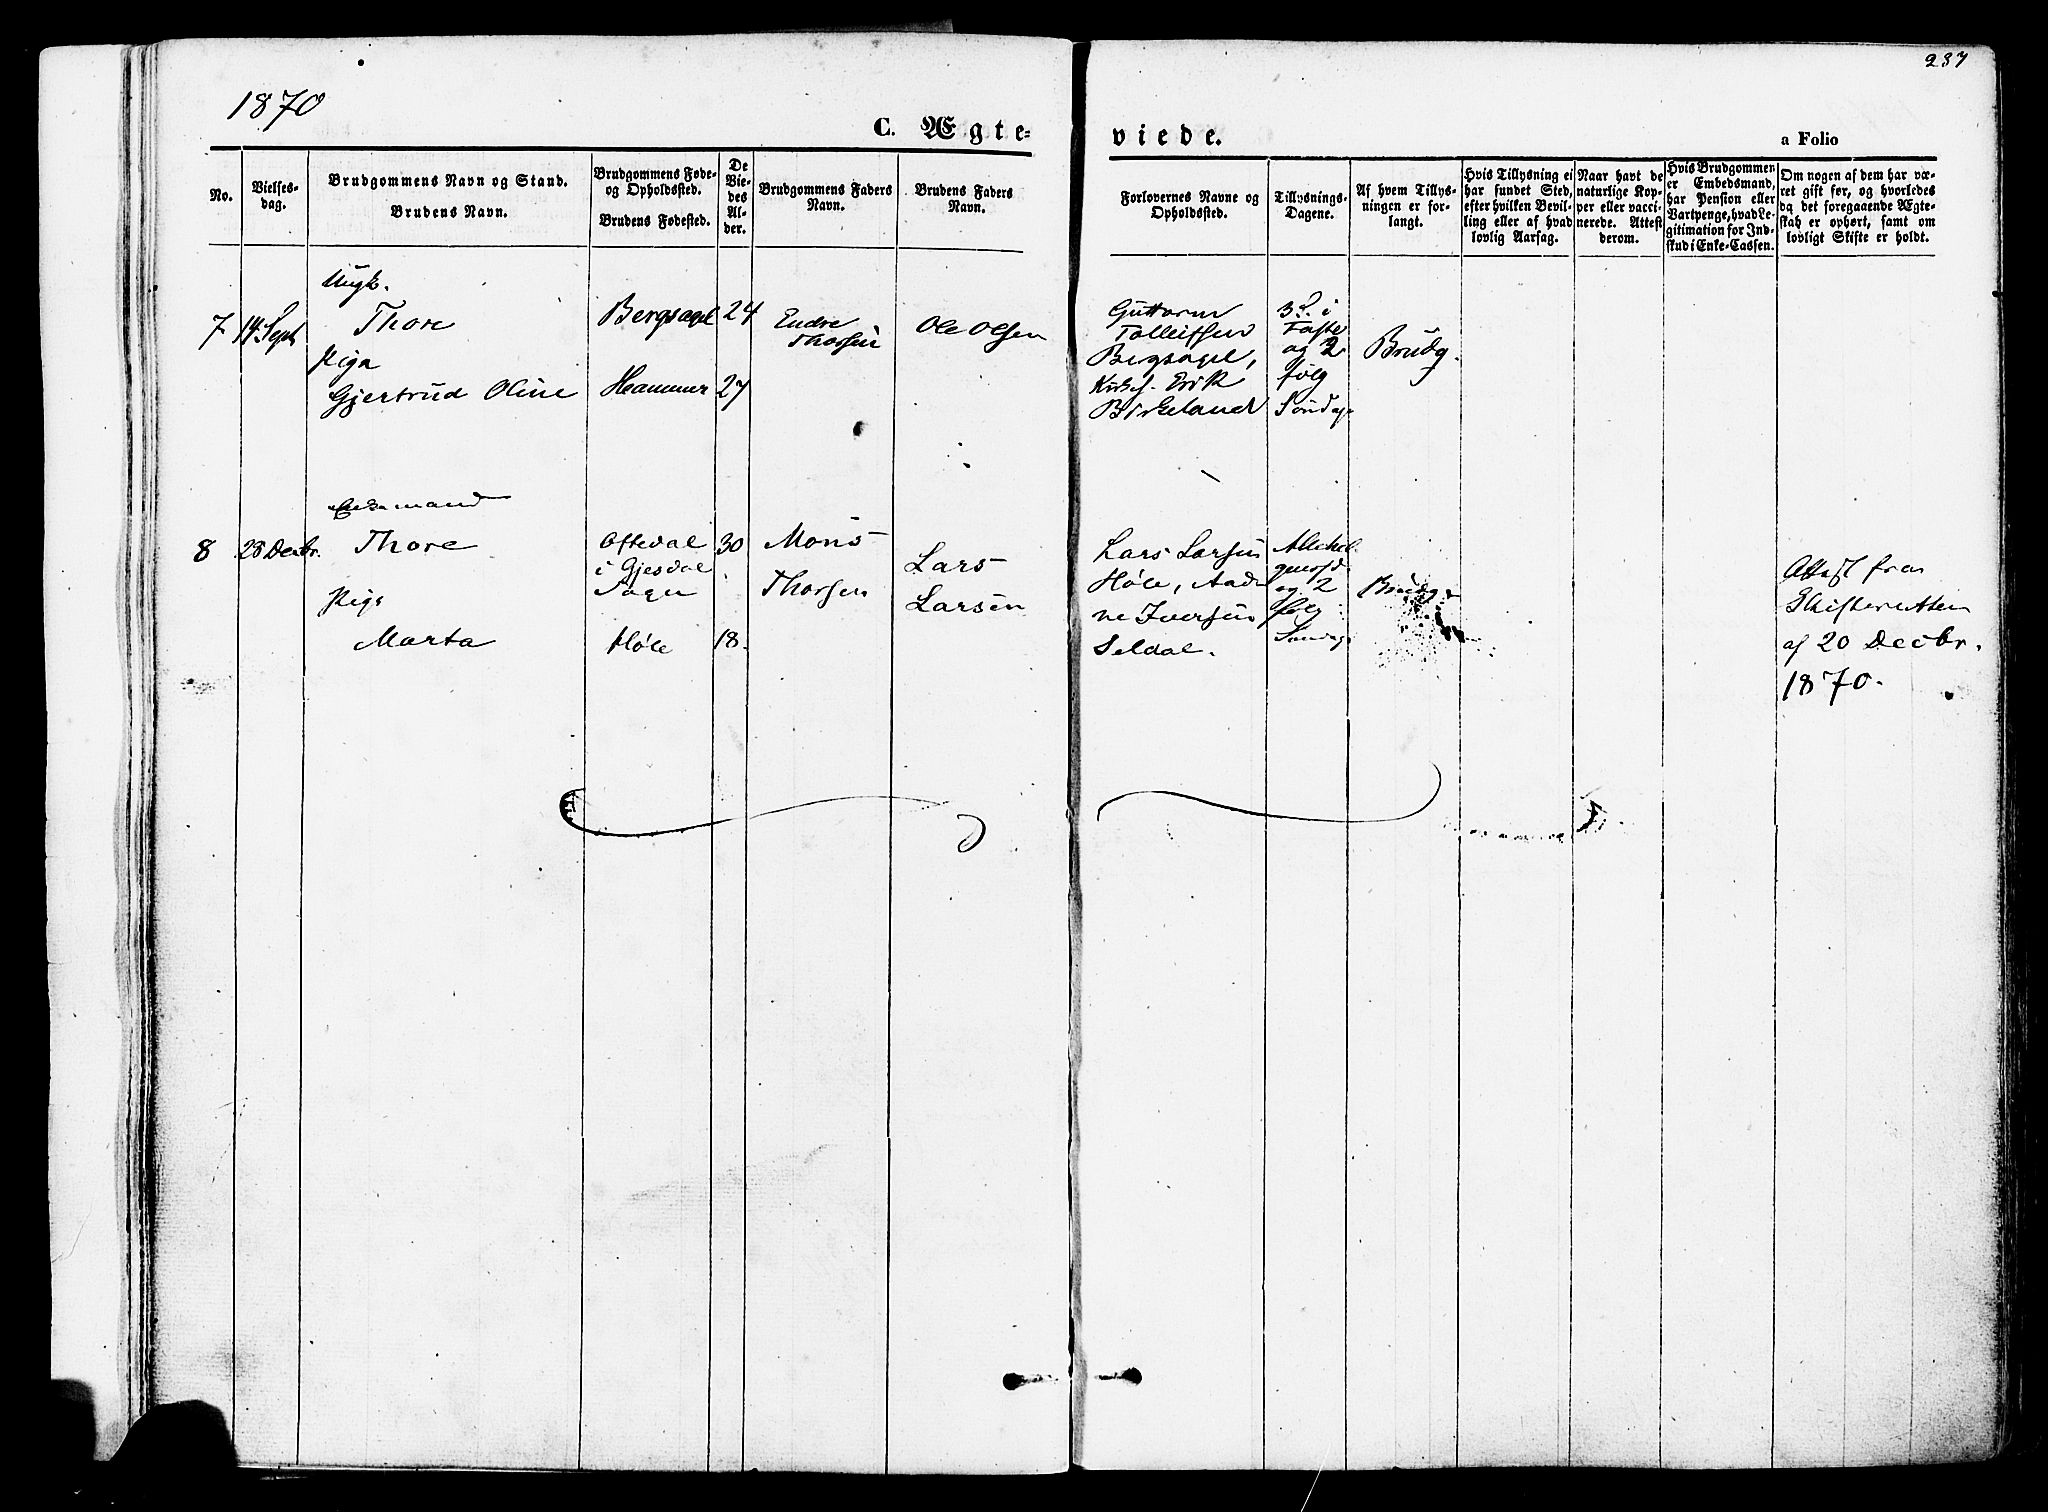 237
1870
C. Ægte-
viede.
a Folio
No.
Vielses-
dag.
Brudgommens Navn og Stand.
Brudens Navn.
Brudgommens Føde-
og Opholdssted.
Brudens Fødested.
De
Vie-
des
Al-
der.
Brudgommens Faders
Navn.
Brudens Faders
Navn.
Forlovernes Navne og
Opholdssted.
Tillysnings-
Dagene.
Af hvem Tillys-
ningen er for-
langt.
Hvis Tillysning ei
har fundet Sted,
efter hvilken Bevil-
ling eller af hvad
lovlig Aarsag.
Naar havt de
naturlige Kop-
per eller vacci-
nerede. Attest
derom.
Hvis Brudgommen
er Embedsmand,
har Pension eller
Vartpenge, hvad Le-
gitimation for Ind-
skud i Enke-Cassen.
Om nogen af dem har væ-
ret gift før, og hvorledes
da det foregaaende Ægte-
skab er ophørt, samt om
lovligt Skifte er holdt.
7
14 Sept
Ungk.
Thore
Pige
Gjertrud Oline
Bergsagel
Hammer
24
27
Endre
Thorsen
Ole Olsen
Guttorm
Tolleifsen
Bergsagel,
Kirkes. Erik
Birkeland
3 S. i
Faste
og 2
følg
Søndage
Brudg.
8
28 Decbr.
Enkemand
Thore
Pige
Marta
Oftedal
i Gjesdal
Sogn
Høle
30
18.
Mons
Thorsen
Lars
Larsen
Lars Larsen
Høle, Aad-
ne Iversen
Seldal.
Allehel-
gensd.
og 2
følg
Søndage
Brudg.
Attest fra
Skifteretten
af 20 Decbr.
1870.